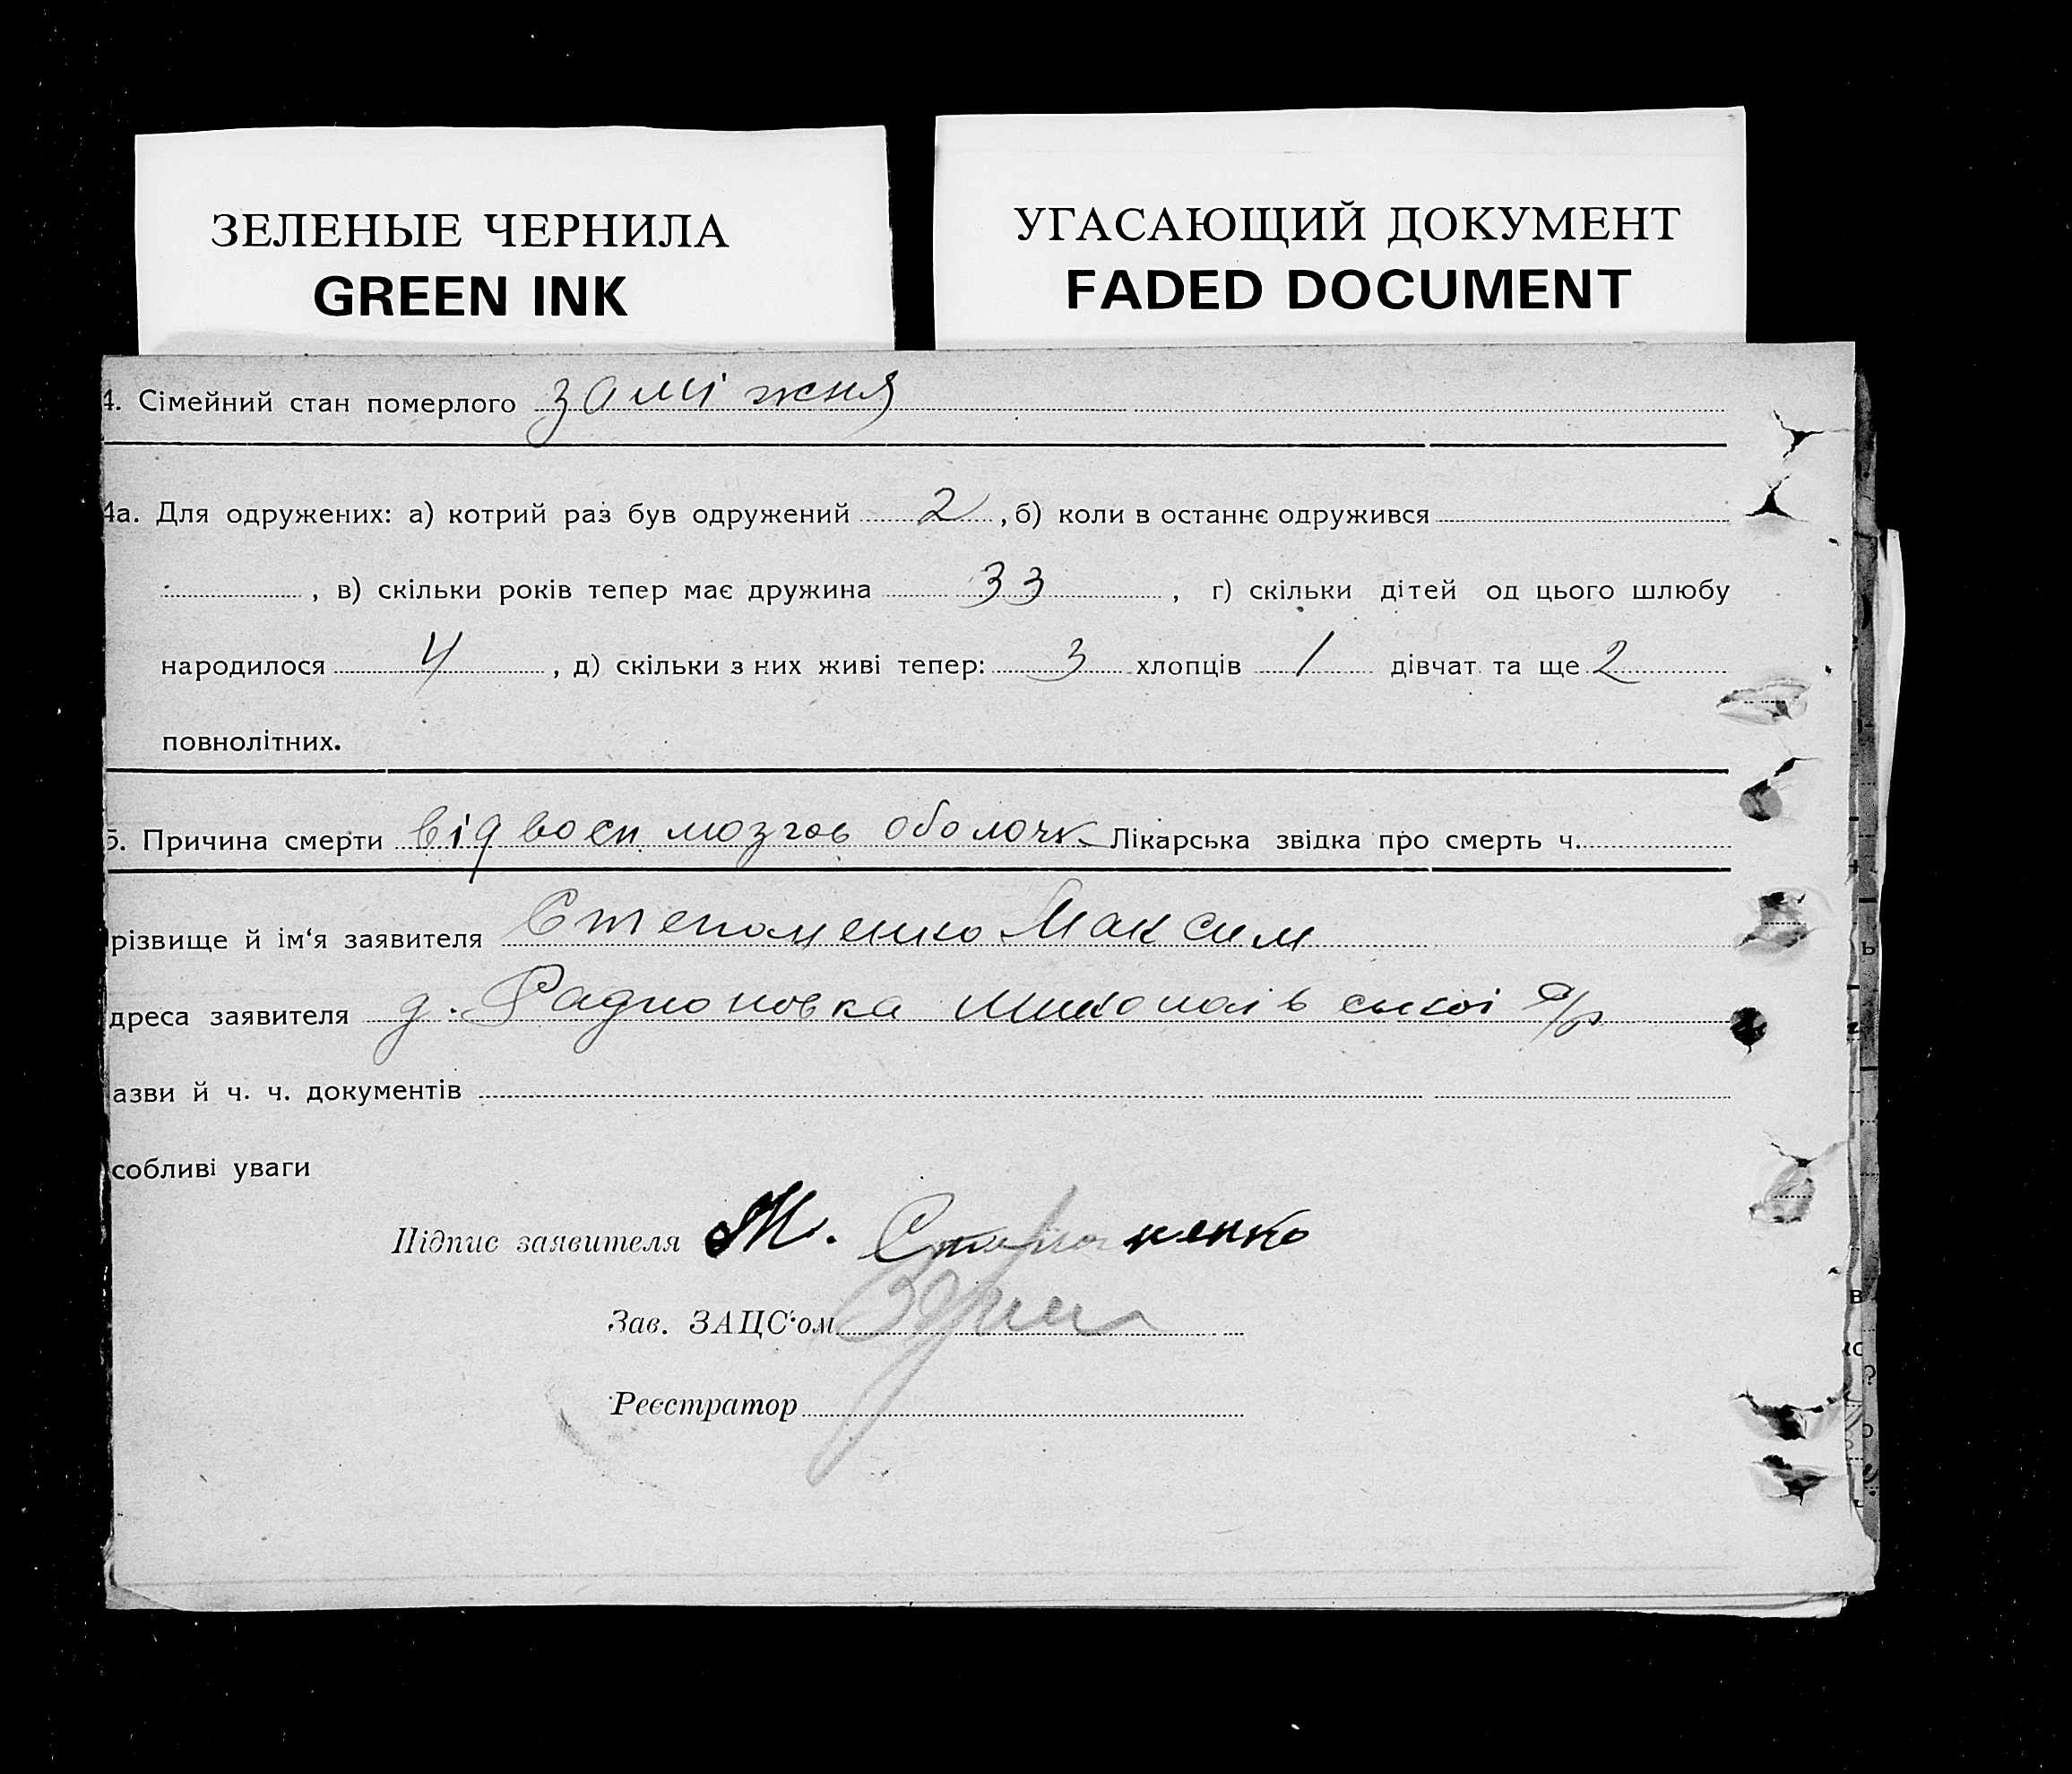 ЗЕЛЕНЫЕ ЧЕРНИЛА
GREEN INK
УГАСАЮЩИЙ ДОКУМЕНТ
FADED DOCUMENT
4. Сімейний стан померлого заміжня
4а. Для одружених: а) котрий раз був одружений 2, б) коли в останнє одружився
, в) скільки років тепер має дружина 33, г) скільки дітей од цього шлюбу
народилося 4, д) скільки з них живі тепер: 3 хлопців 1 дівчат та ще 2
повнолітних.
5. Причина смерти від восп мозгов оболочк Лікарська звідка про смерть ч.
різвище й ім‘я заявителя Степаненко Максим
дреса заявителя д. Радионовка с/р
азви й ч. ч. документів
собливі уваги
Підпис заявителя М. Степаненко
Зав. ЗАЦС‘ом
Реєстратор